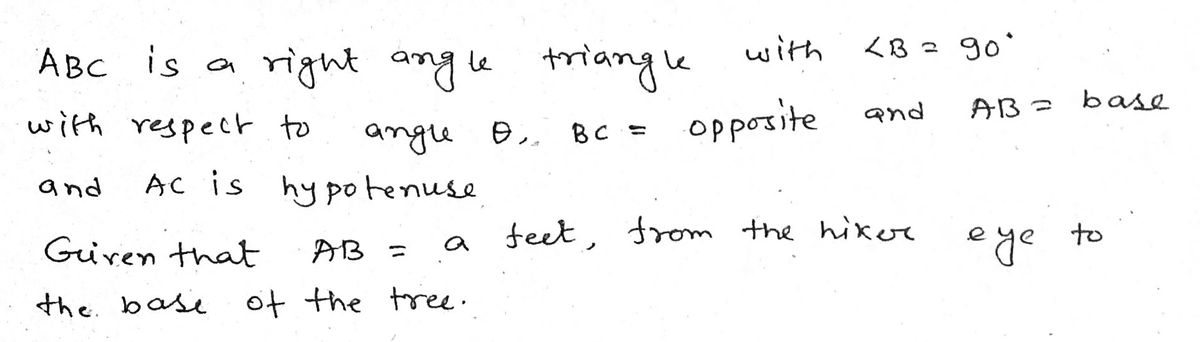 ABC is a right angle triangle with <B = 90°
with respect to angle θ, BC = opposite and AB = base
and AC is hypotenuse
Given that AB = a feet, from the hiker eye to
the base of the tree.